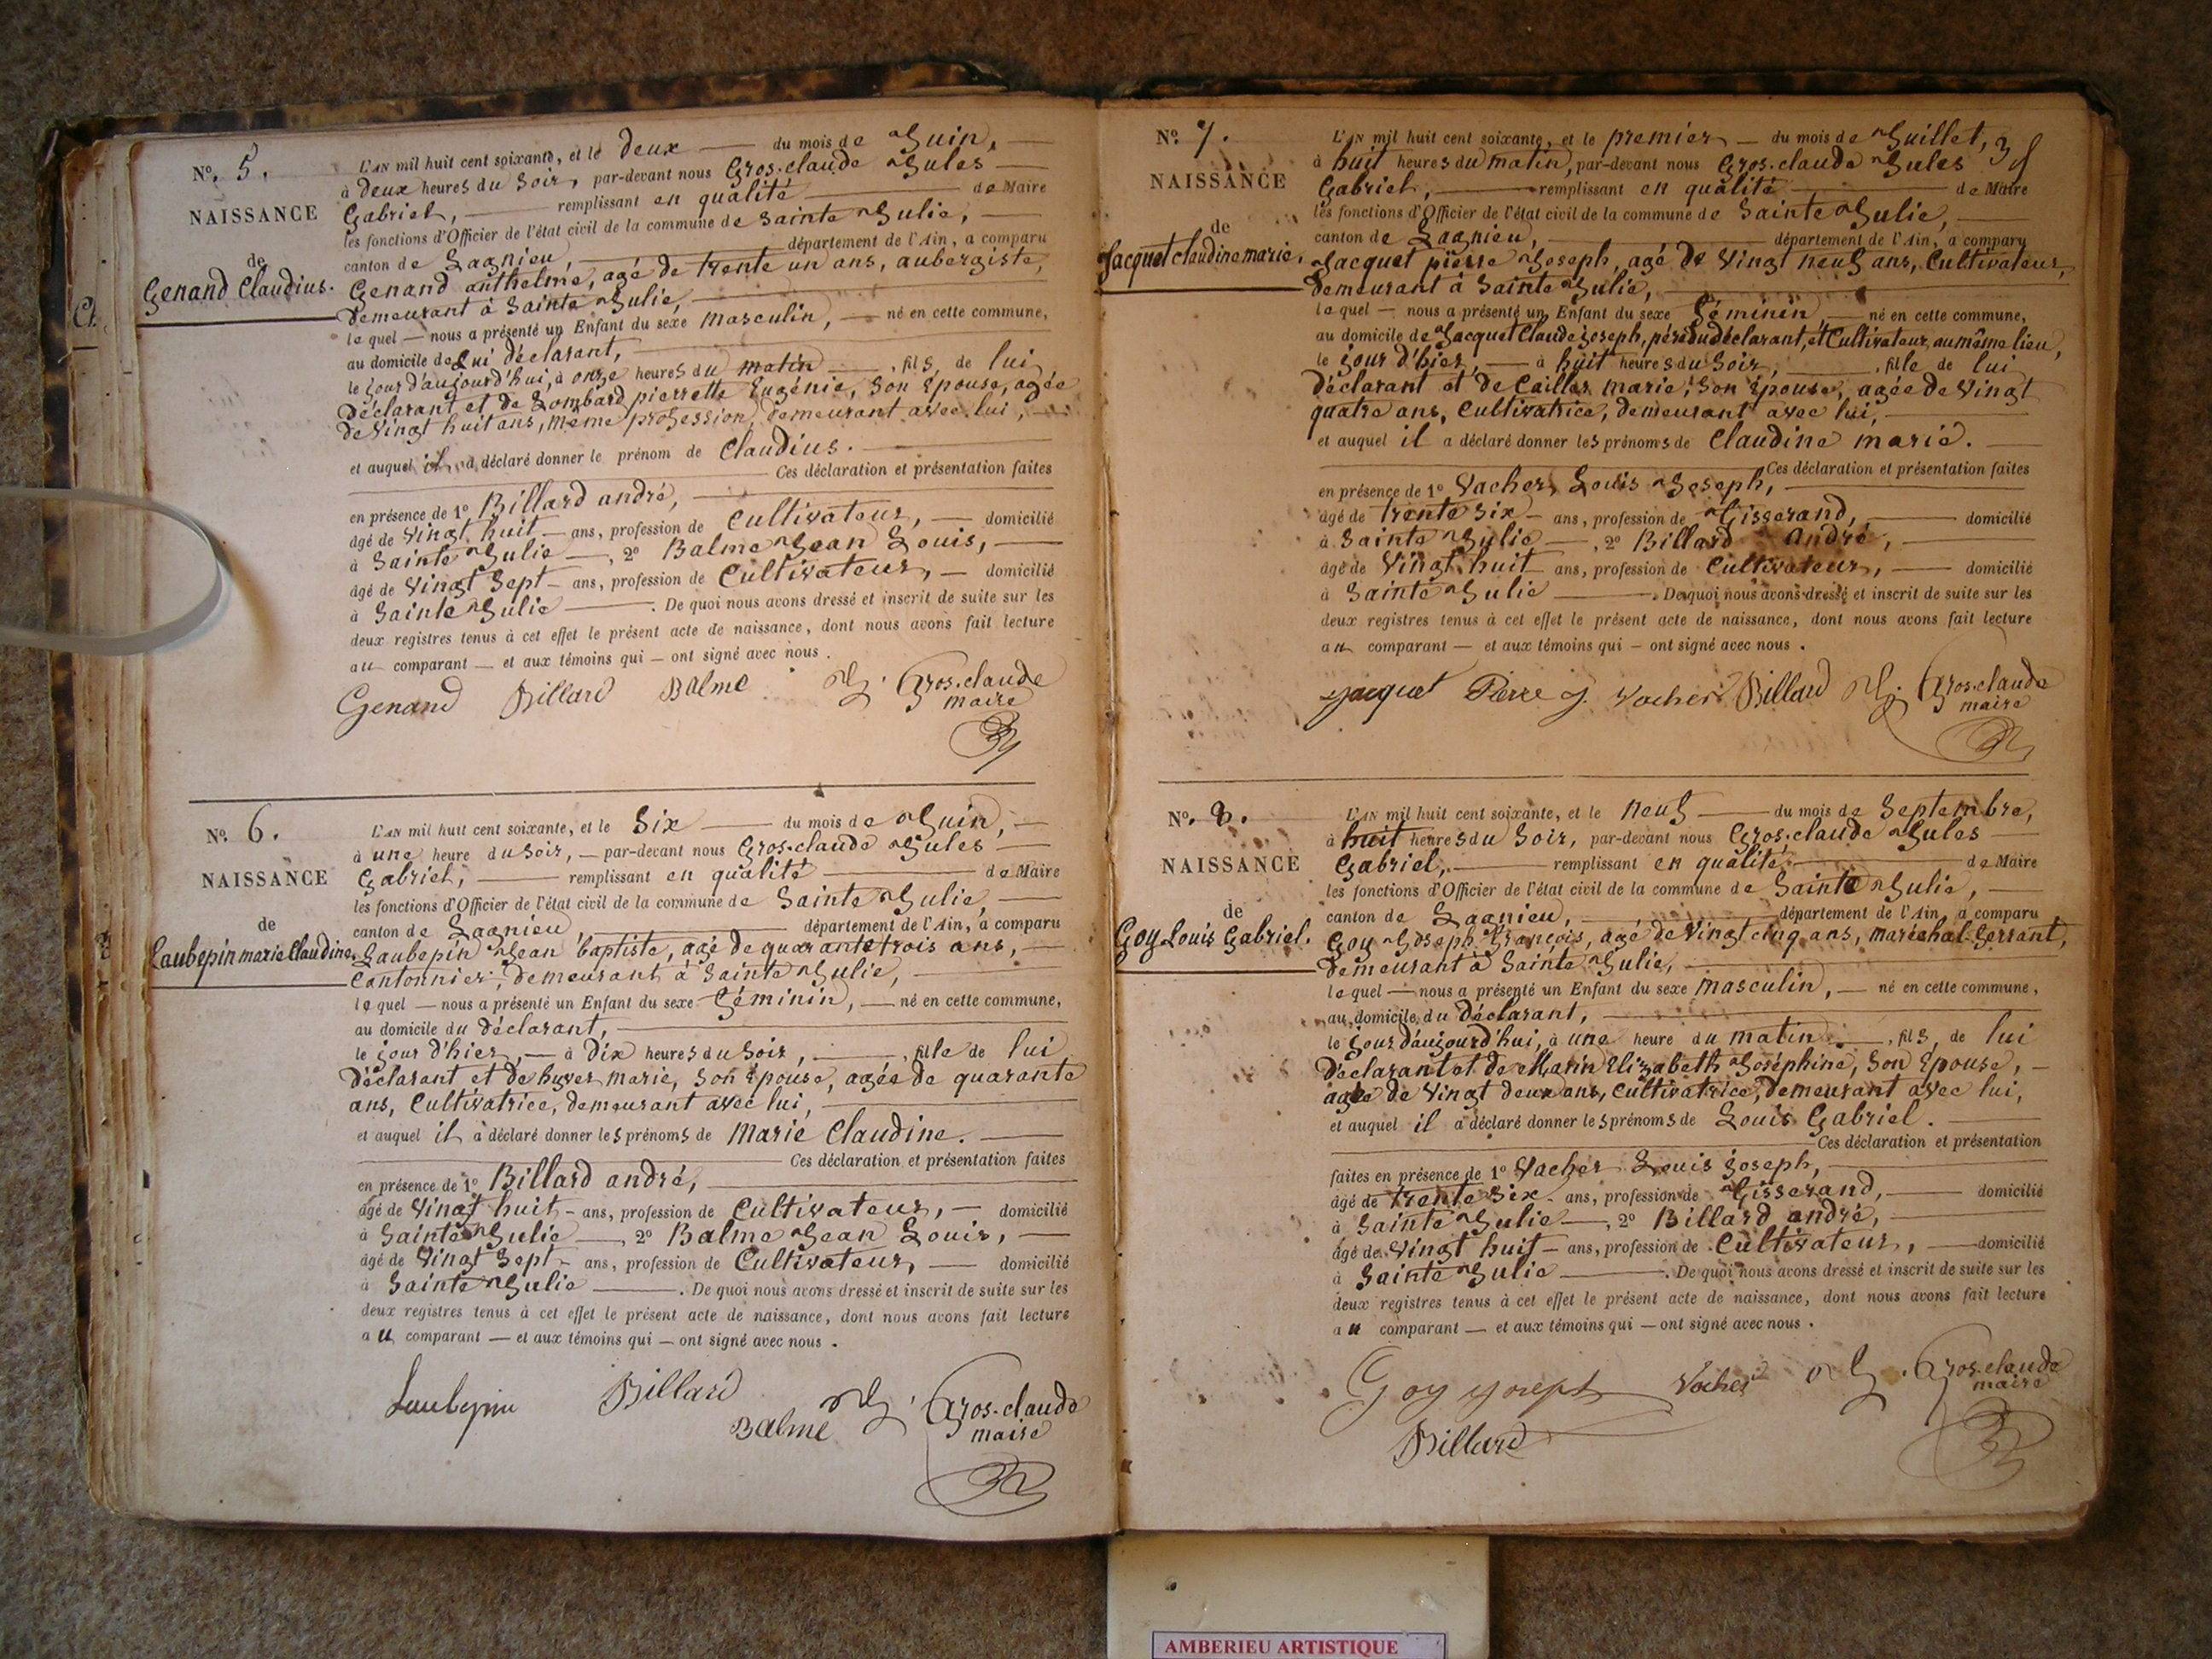 Nº. 5.
NAISSANCE
de
Genand Claudius.
L'AN mil huit cent soixante, et le deux du mois de Juin,
à deux heures du soir, par-devant nous Gros-claude Jules
Gabriel, remplissant en qualité de Maire
les fonctions d'Officier de l'état civil de la commune de Sainte Julie,
canton de Lagnieu, département de l'Ain, a comparu
Genand anthelme, agé de trente un ans, aubergiste,
demeurant à Sainte Julie,
le quel — nous a présenté un Enfant du sexe masculin, — né en cette commune,
au domicile de Lui déclarant,
le jour d'aujourd'hui, à onze heures du matin, fils de lui
déclarant et de Lombard pierrette Eugénie, son épouse, agée
de vingt huit ans, même profession, demeurant avec lui,
et auquel il a déclaré donner le prénom de Claudius.
Ces déclaration et présentation faites
en présence de 1º Billard andré,
âgé de vingt huit — ans, profession de Cultivateur, — domicilié
à Sainte Julie —, 2º Balme Jean Louis,
âgé de vingt sept — ans, profession de Cultivateur, — domicilié
à Sainte Julie —. De quoi nous avons dressé et inscrit de suite sur les
deux registres tenus à cet effet le présent acte de naissance, dont nous avons fait lecture
au comparant — et aux témoins qui — ont signé avec nous.
Genand Billard Balme J. G. Gros-claude
maire
Nº. 6.
NAISSANCE
de
Laubepin marie Claudine.
L'AN mil huit cent soixante, et le six du mois de Juin,
à une heure du soir, — par-devant nous Gros-claude Jules
Gabriel, remplissant en qualité de Maire
les fonctions d'Officier de l'état civil de la commune de Sainte Julie,
canton de Lagnieu, département de l'Ain, a comparu
Laubepin Jean baptiste, agé de quarante trois ans,
Cantonnier, demeurant à Sainte Julie,
le quel — nous a présenté un Enfant du sexe féminin, — né en cette commune,
au domicile du déclarant,
le jour d'hier, — à dix heures du soir, fille de lui
déclarant et de huver marie, son épouse, agée de quarante
ans, Cultivatrice, demeurant avec lui,
et auquel il a déclaré donner les prénoms de Marie Claudine.
Ces déclaration et présentation faites
en présence de 1º Billard andré,
âgé de vingt huit — ans, profession de Cultivateur, — domicilié
à Sainte Julie —, 2º Balme Jean Louis,
âgé de vingt sept — ans, profession de Cultivateur, — domicilié
à Sainte Julie —. De quoi nous avons dressé et inscrit de suite sur les
deux registres tenus à cet effet le présent acte de naissance, dont nous avons fait lecture
au comparant — et aux témoins qui — ont signé avec nous.
Laubepin Billard
Balme J. G. Gros-claude
maire
Nº. 7.
NAISSANCE
de
Jacquet claudine marie.
L'AN mil huit cent soixante, et le premier — du mois de Juillet,
à huit heures du matin, par-devant nous Gros-claude Jules
Gabriel, remplissant en qualité de Maire
les fonctions d'Officier de l'état civil de la commune de Sainte Julie,
canton de Lagnieu, département de l'Ain, a comparu
Jacquet pierre Joseph, agé de vingt neuf ans, Cultivateur,
demeurant à Sainte Julie,
le quel — nous a présenté un Enfant du sexe féminin, — né en cette commune,
au domicile de Jacquet Claude joseph, père du déclarant, et Cultivateur au même lieu,
le jour d'hier, — à huit heures du soir, fille de lui
déclarant et de Cailler marie, son épouse, agée de vingt
quatre ans, Cultivatrice, demeurant avec lui,
et auquel il a déclaré donner les prénoms de Claudine marie.
Ces déclaration et présentation faites
en présence de 1º Vacher Louis Joseph,
âgé de trente six — ans, profession de Tisserand, domicilié
à Sainte Julie —, 2º Billard André,
âgé de vingt huit ans, profession de Cultivateur, — domicilié
à Sainte Julie —. De quoi nous avons dressé et inscrit de suite sur les
deux registres tenus à cet effet le présent acte de naissance, dont nous avons fait lecture
au comparant — et aux témoins qui — ont signé avec nous.
jacquet Pierre j. Vacher Billard J. G. Gros-claude
maire
Nº. 8.
NAISSANCE
de
Goy Louis Gabriel.
L'AN mil huit cent soixante, et le neuf du mois de Septembre,
à huit heures du soir, par-devant nous Gros-claude Jules
Gabriel, remplissant en qualité de Maire
les fonctions d'Officier de l'état civil de la commune de Sainte Julie,
canton de Lagnieu, département de l'Ain, a comparu
Goy Joseph François, agé de vingt cinq ans, maréchal-ferrant,
demeurant à Sainte Julie,
le quel — nous a présenté un Enfant du sexe masculin, — né en cette commune,
au domicile du déclarant,
le jour d'aujourd'hui, à une heure du matin, fils de lui
déclarant et de Marin Elizabeth Joséphine, son épouse,
agée de vingt deux ans, cultivatrice, demeurant avec lui,
et auquel il a déclaré donner les prénoms de Louis Gabriel.
Ces déclaration et présentation
faites en présence de 1º Vacher Louis joseph,
âgé de trente six — ans, profession de Tisserand, domicilié
à Sainte Julie —, 2º Billard andré,
âgé de vingt huit — ans, profession de Cultivateur, — domicilié
à Sainte Julie —. De quoi nous avons dressé et inscrit de suite sur les
deux registres tenus à cet effet le présent acte de naissance, dont nous avons fait lecture
au comparant — et aux témoins qui — ont signé avec nous.
Goy joseph Vacher J. G. Gros-claude
maire
Billard
AMBERIEU ARTISTIQUE